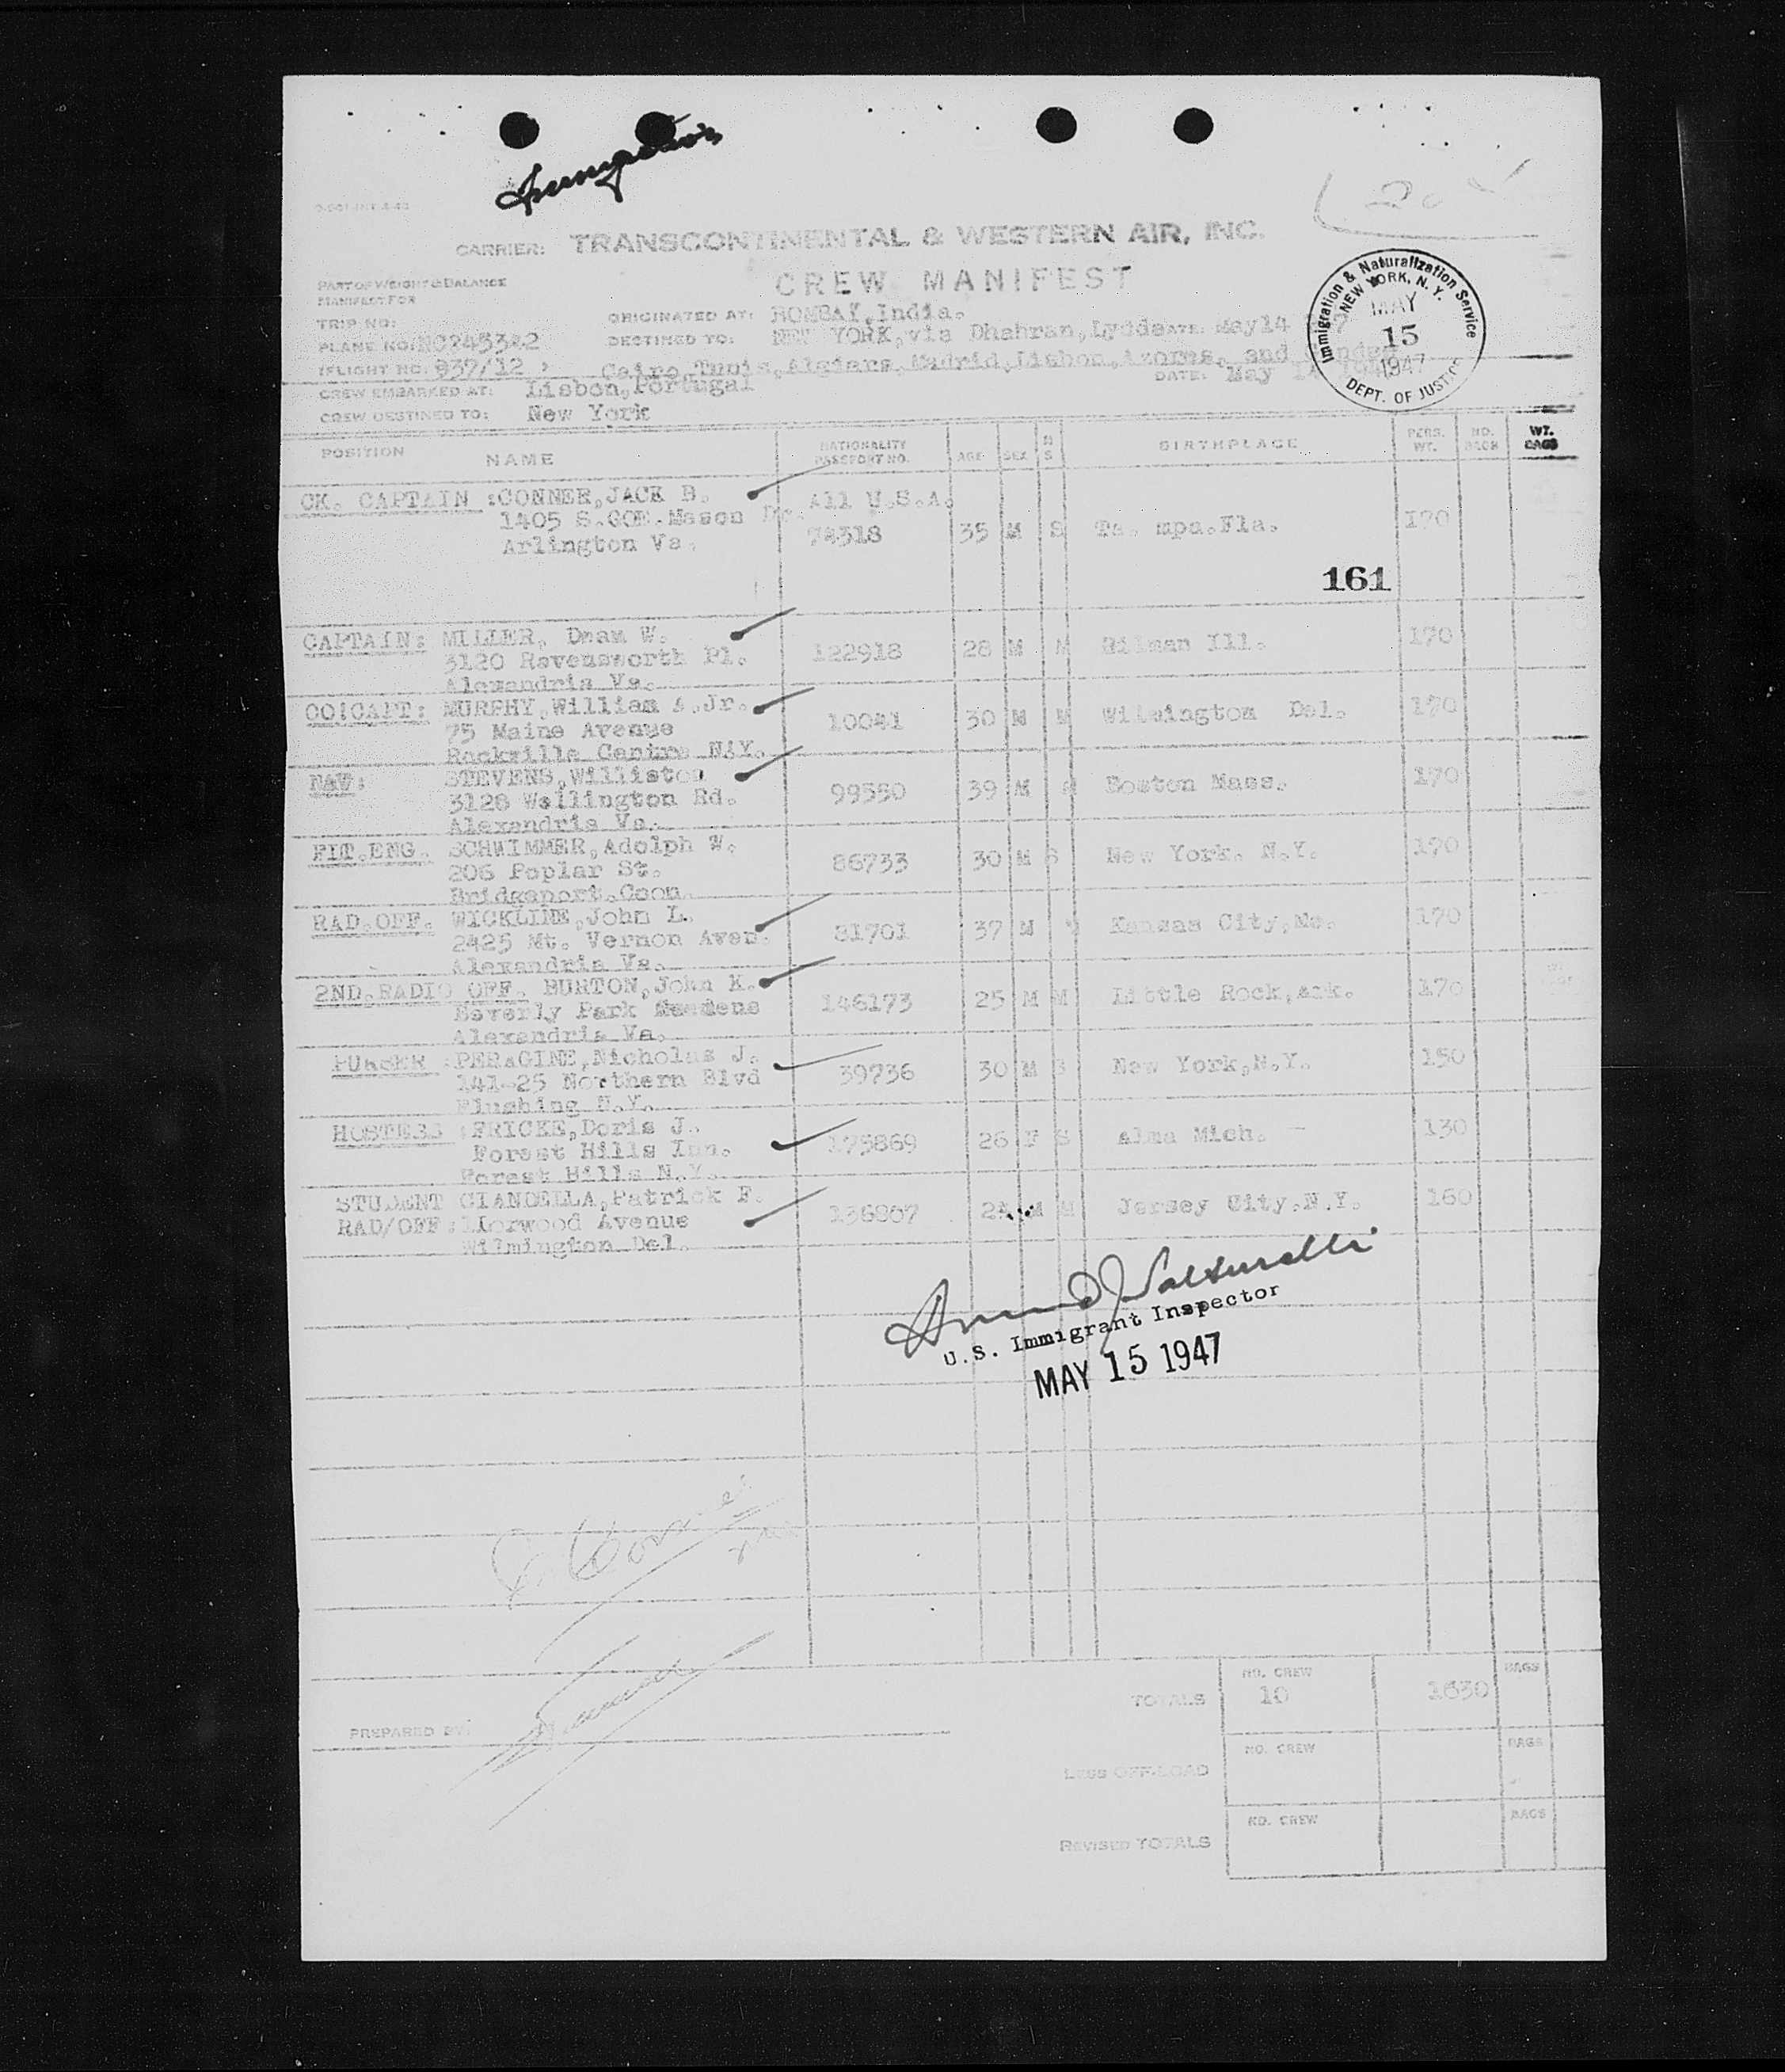 CARRIER: TRANSCONTINENTAL & WESTERN AIR, INC.
CREW MANIFEST
PART OF WEIGHT & BALANCE
MANIFEST FOR
TRIP NO:
ORIGINATED AT: BOMBAY, India.
PLANE NO:
DESTINED TO: NEW YORK, via Dhahran, Lydda DATE: May14
FLIGHT NO. 937/12 Cairo, Tunis, Algiers, Madrid, Lisbon, Azores, and
CREW EMBARKED AT: Lisbon, Portugal DATE: May
CREW DESTINED TO: New York
Immigration & Naturalization Service
NEW YORK, N. Y.
MAY
15
1947
DEPT. OF JUSTICE
POSITION NAME NATIONALITY PASSPORT NO. AGE SEX M S BIRTHPLACE PERS. WT. NO. BAGS WT. BAGS
CK. CAPTAIN :CONNER, JACK B. All U.S.A.
1405 S.GOE.Mason
Arlington Va. 74318 35 M S Ta. mpa.Fla. 170
161
CAPTAIN: MILLER, Dean W.
3120 Ravensworth Pl. 122918 28 M M Ill. 170
Alexandria Va.
CO!CAPT: MURPHY, William A.Jr.
75 Maine Avenue 10041 30 M M Wilmington Del. 170
Rockville Centre N.Y.
NAV: STEVENS, Williston
3128 Wellington Rd. 99550 39 M Boston Mass. 170
Alexandria Va.
FIT.ENG. SCHWIMMER, Adolph W.
206 Poplar St. 86733 30 M S New York. N.Y. 170
Bridgeport.Conn.
RAD.OFF. WICKLINE, John L.
2425 Mt. Vernon Aven. 81701 37 M Kansas City, Mo. 170
Alexandria Va.
2ND.RADIO OFF. BURTON, John K.
Beverly Park 146173 25 M M Little Rock, Ark. 170
Alexandria Va.
PURSER :PERAGINE, Nicholas J.
141-25 Northern Blvd 39736 30 M S New York, N.Y. 150
Flushing N.Y.
HOSTESS :FRICKE, Doris J.
Forest Hills Inn. 175869 26 F S Alma Mich. 130
Forest Hills N.Y.
STUDENT CIANCELLA, Patrick F.
RAD/OFF: Norwood Avenue 136807 24 M M Jersey City.N.Y. 160
Wilmington Del.
U.S. Immigrant Inspector
MAY 15 1947
TOTALS NO. CREW 10 1630 BAGS
PREPARED BY:
LESS OFF-LOAD NO. CREW BAGS
REVISED TOTALS NO. CREW BAGS